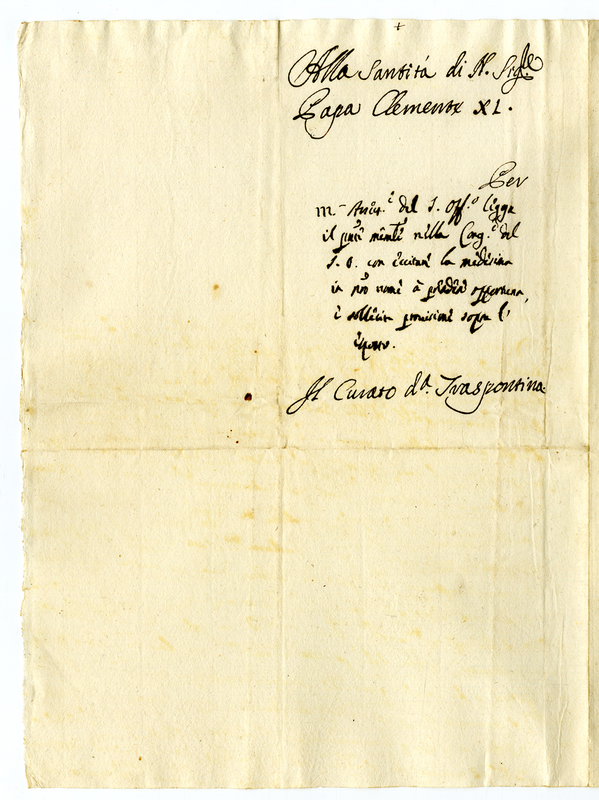 Alla Santità di N. Sig.re
Papa Clemente XI.
Per
m.r Asses.e del S. Off.o legga
il pnte mem.le nella Cong.e del
S. O. con eccitare la medesima
in nro nome à prouisione opportuna,
e sollecita sopra l'
esposto.
Il Curato d.a Traspontina